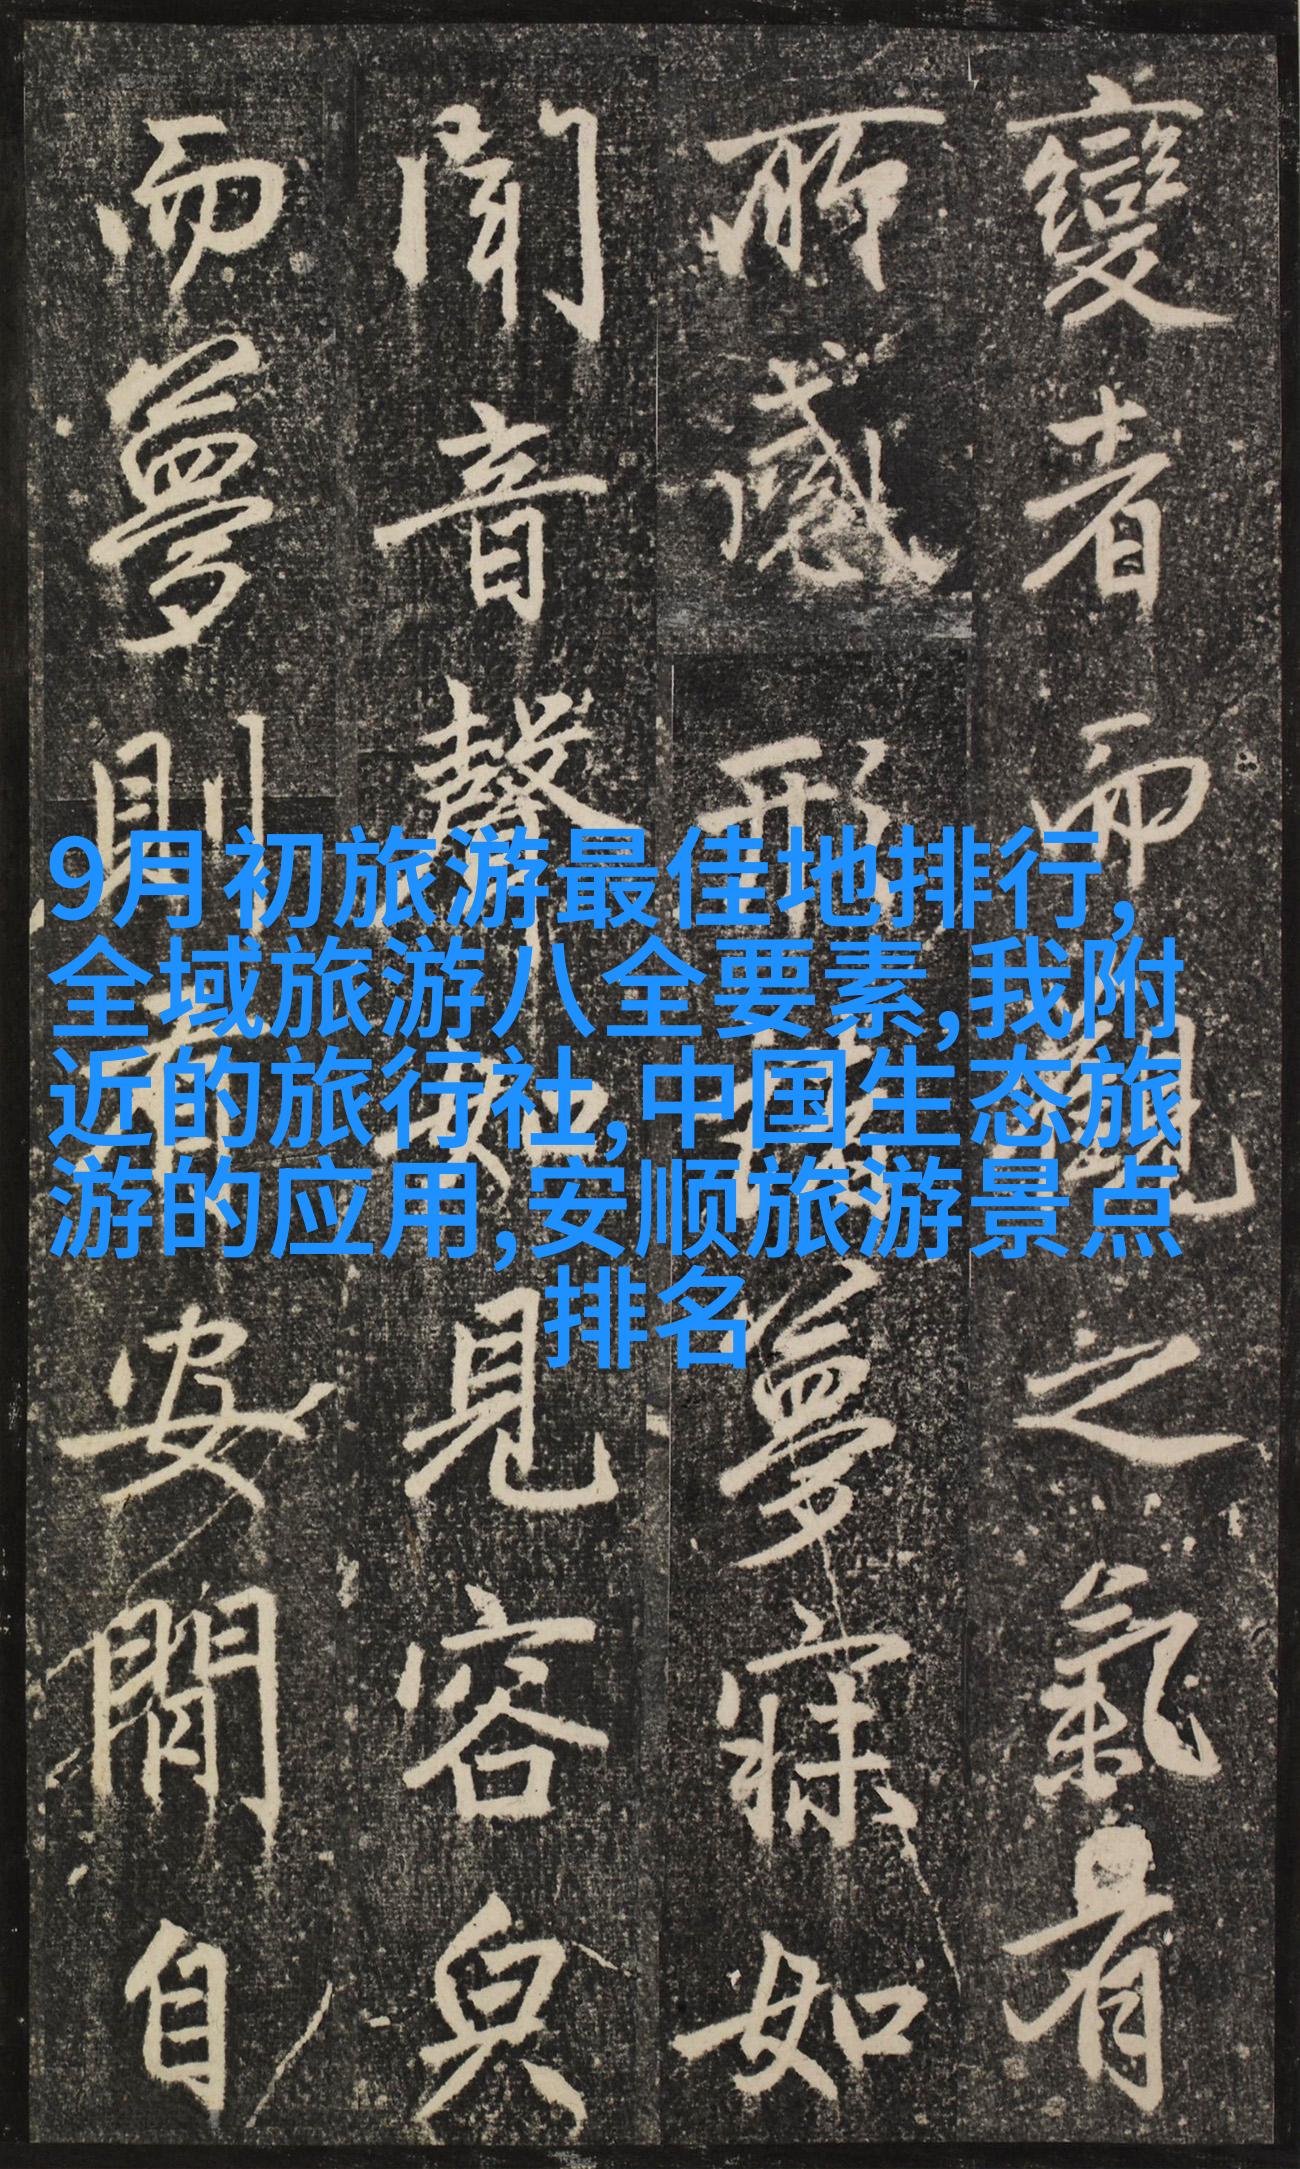 9月初旅游最佳地排行,
全域旅游八全要素,我附
近的旅行社,中国生态旅
游的应用,安顺旅游景点
排名
變者而觀之氣有
所感形夢寐如
聞音聲如見容皃
而夢則安閒自